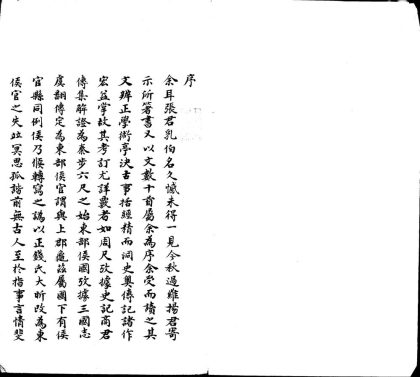 序
余耳張君乳伯名久憾未得一見今秋過難揚君寄
示所箸書又以文數十首屬余為序余受而讀之其
文辨正學術亭決古事括經精而洞史奧傳記諸作
宏益掌故其考訂尤詳覈者如周尺攷據史記商君
傳集解證為秦步六尺之始東部侯國攷據三國志
虞翻傳定為東部侯官謂與上郡龜茲屬國下有侯
官縣同例侯乃候轉寫之譌以正錢氏大昕改為東
侯官之失竝冥思孤詣前無古人至於指事言情斐